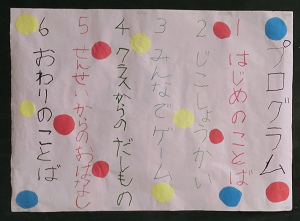 プログラム
1 はじめのことば
2 じこしょうかい
3 みんなでゲーム
4 クラスからのだしもの
5 せんせいかたのおはなし
6 おわりのことば